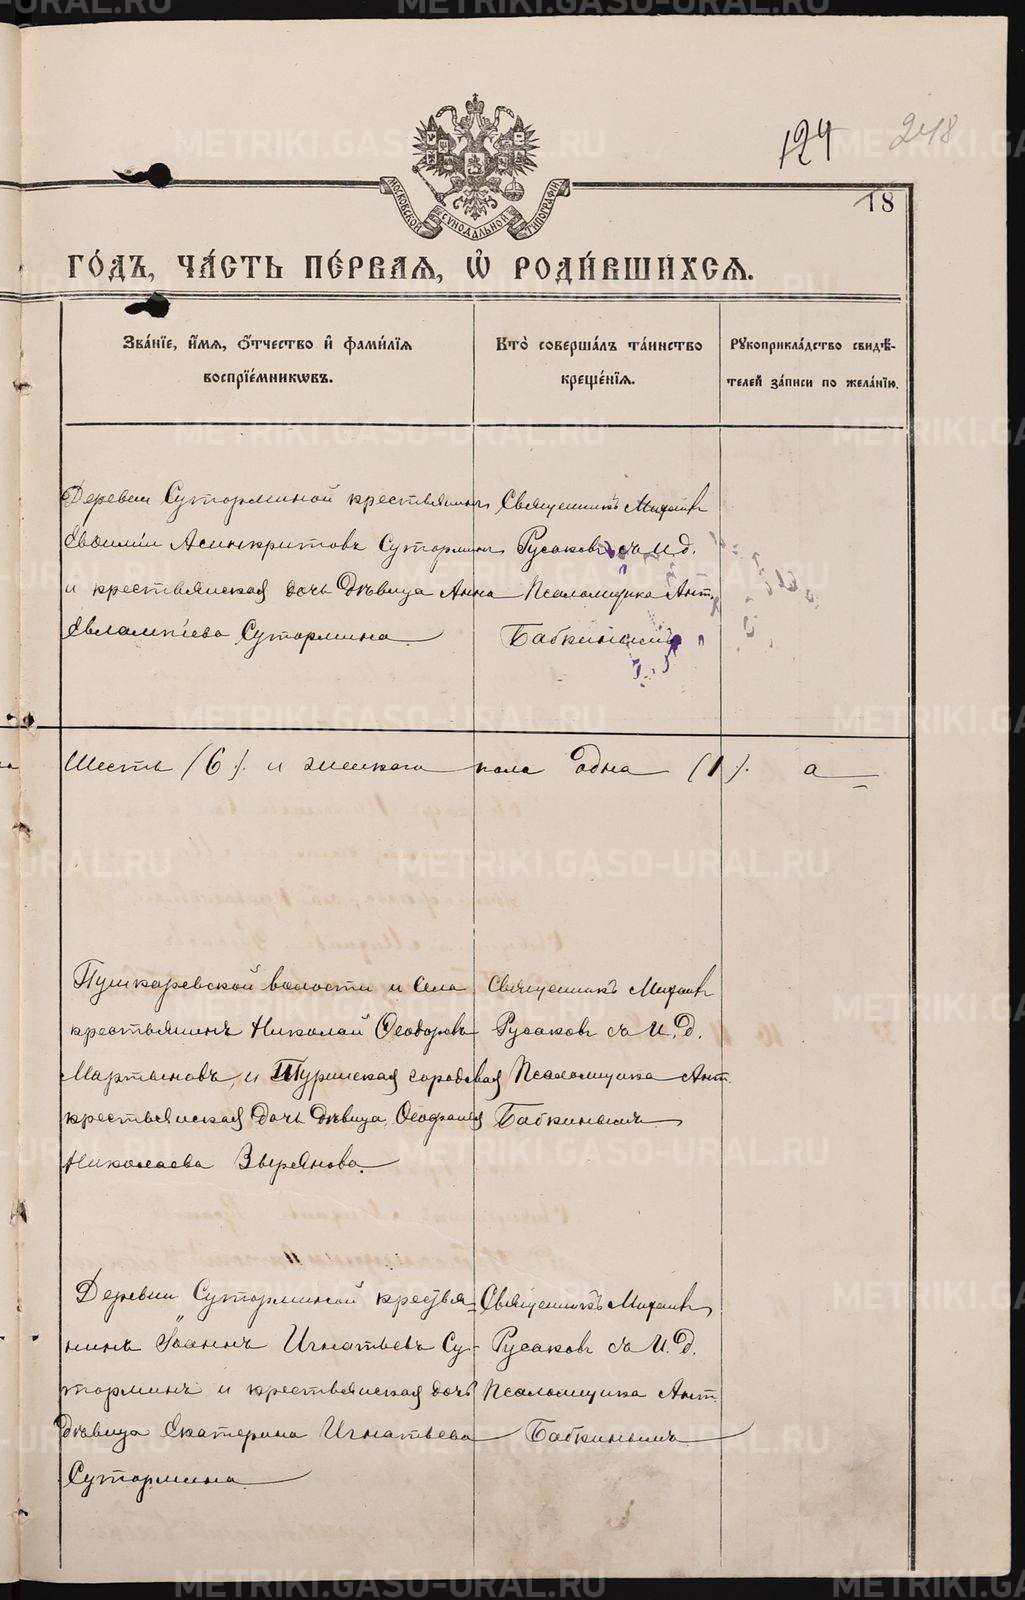 124
248
18
МОСКОВСКОЙ СѴНОДАЛЬНОЙ ТИПОГРАФІИ
ГО́ДЪ, ЧА́СТЬ ПЕ́РВАѦ, Ѡ҆ РОДИ́ВШИХСѦ.
Зва́нїе, и҆́мѧ, ѻ҆́тчество и҆ фами́лїѧ
воспрїе́мникѡвъ.
Кто̀ соверша́лъ та́инство
креще́нїѧ.
Рꙋкоприкла́дство свидѣ́-
телей за́писи по жела́нїю.
Деревни Сутормонной крестьянинъ
Евѳимій Асинкритовъ Суторминъ
и крестьянская дочь дѣвица Анна
Евлампіева Сутормина
Священникъ Михаилъ
Русаковъ съ и. д.
Псаломщика Ант.
Бабкинымъ
Шесть (6). и женскаго пола одна (1). а
Пушкаревской волости и села
крестьянинъ Николай Ѳеодоровъ
Мартыновъ, и Туринская городовая
крестьянская дочь дѣвица, Ѳеофанія
Николаева Зырянова
Священникъ Михаилъ
Русаковъ съ И. Д.
Псаломщика Ант.
Бабкинымъ
Деревни Суторминой крестья-
нинъ Іоаннъ Игнатьевъ Су-
торминъ и крестьянская дочь
дѣвица Екатерина Игнатьева
Сутормина
Священникъ Михаилъ
Русаковъ съ И. Д.
Псаломщика Ант.
Бабкинымъ
METRIKI.GASO-URAL.RU